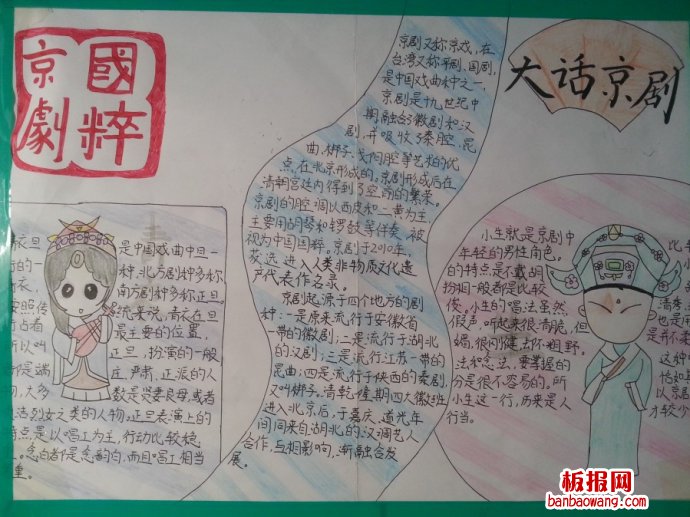 國粹
京劇
大话京剧
京剧又称京戏，在
台湾又称平剧、国剧，
是中国戏曲种之一，
京剧是十九世纪中
期融合了徽剧和汉
剧，并吸收了秦腔、昆
曲、梆子、弋阳腔等艺术的优
点，在北京形成的。京剧形成后在
清朝宫廷内得到了空前的繁荣。
京剧的腔调以西皮和二黄为主，
主要用胡琴和锣鼓等伴奏，被
视为中国国粹。京剧于2010年，
获选进入人类非物质文化遗
产代表作名录。
京剧起源于四个地方的剧
种：一是原来流行于安徽省
一带的徽剧；二是流行于湖北
的汉剧；三是流行江苏一带的
昆曲；四是流行于陕西的秦剧，
又叫梆子。清乾隆期四大徽班
进入北京后，于嘉庆、道光年
间同来自湖北的汉调艺人
合作，互相影响，渐融合发
展。
衣旦
的一
衣，
按照传
所占着
所以叫
都是端
物，大多
是中国戏曲中旦一
种，北方剧种多称，
南方剧种多称正旦
统来说，青衣在旦
最主要的位置，
正旦，扮演的一般
庄，严肃，正派的人
数是贤妻良母，或者
洁烈女之类的人物。正旦表演上的
特点是以唱工为主，行动比较稳
念白都是念韵白，而且唱工相当
重。
小生就是京剧中
年轻的男性角色。
的特点是不戴胡
扮相一般都是比较
俊。小生的唱法虽然，
假声，听起来很清脆，但
娟，很刚健，去不粗野
法和念法，要掌握的
分是很不容易的。所
小生这一行，历来是人
行当。
比
清秀
也是用
是并不柔
这种
恰如
以京剧
才较少
板报网
banbaowang.com